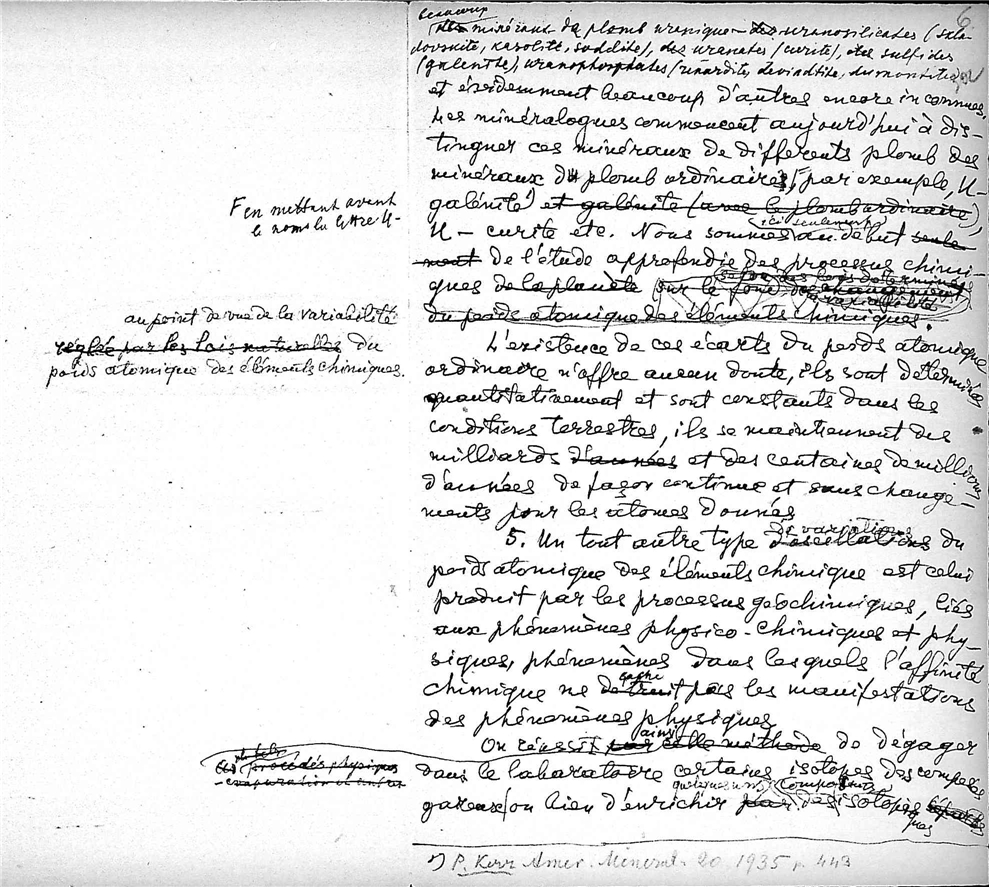 6
beaucoup
des minéraux de plomb uranique – des uranosilicates (skla-
dovskite, kasolite, soddite), des uranates (curite), des sulfides
(galenite), uranophosphates (renardite, dewindtite, dumontite),
et évidemment beaucoup d'autres encore inconnues.
Les minéralogues commencent aujourd'hui à dis-
tinguer ces minéraux de differents plomb des
minéraux du plomb ordinaire, par exemple, U-
F en mettant avant
le noms la lettre U-
galénite) et galénite (avec le plomb ordinaire),
ici seulement
U – curite etc. Nous sommes au début seule-
ment de l'étude approfondie des processus chimi-
selon des lois déterminées
ques de la planète sur le fond des changement
variabilité
du poids atomique des éléments chimiques.
au point de vue de la variabilité
réglée par les lois naturelles du
poids atomique des éléments chimiques.
L'existence de ces écarts du poids atomique
ordinaire n'offre aucun doute, ils sont déterminés
quantitativement et sont constants dans les
conditions terrestres, ils se maintiennent des
milliards d'années et des centaines de millions
d'années de façon continue et sans change-
ments pour les atomes donnés
de variations
5. Un tout autre type d'oscillations du
poids atomique des éléments chimique est celui
produit par les processus géochimiques, liés
aux phénomènes physico-chimiques et phy-
siques, phénomènes dans lesquels l'affinité
cache
chimique ne detruit pas les manifestations
des phénomènes physiques
ainsi
On réussit par cette méthode de dégager
procédés physiques
evaporation
dans le laboratoire certains isotopes des composés
quelques uns composants
gazeux ou bien d'enrichir par des isotopes
ques
*) P. Kerr Amer. Mineral. 20 1935 p. 443